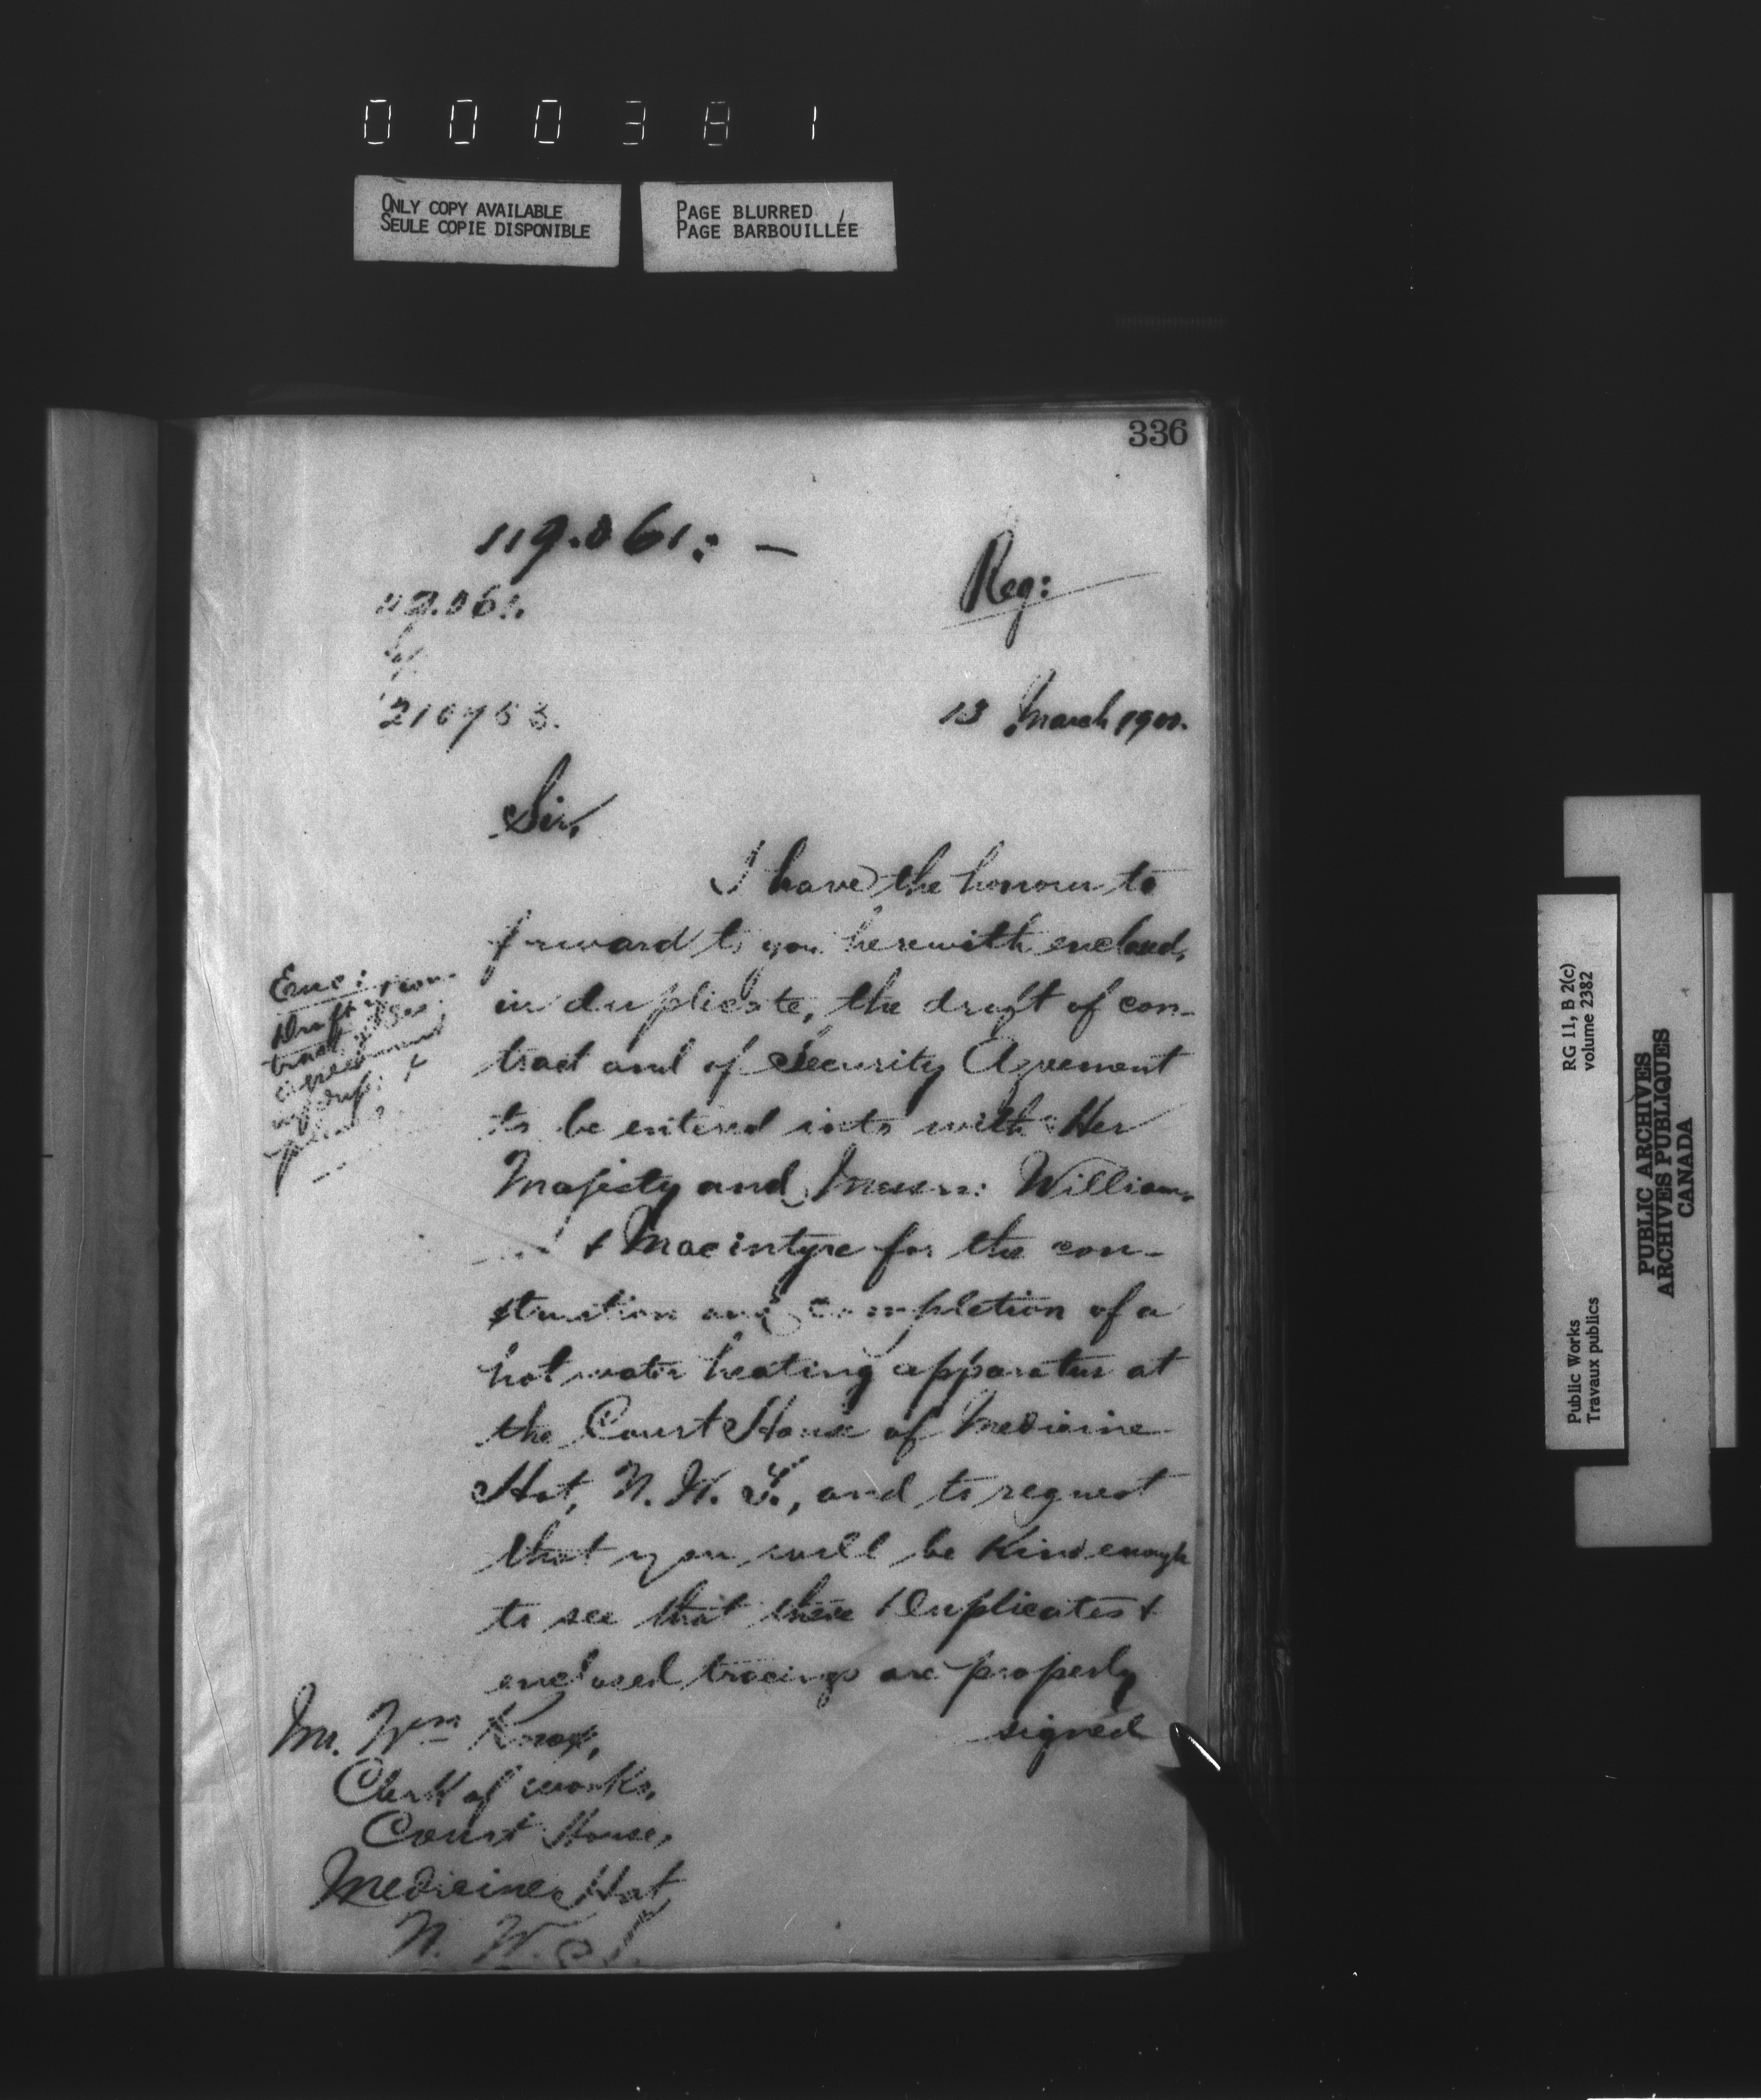 000381
ONLY COPY AVAILABLE
SEULE COPIE DISPONIBLE
PAGE BLURRED
PAGE BARBOUILLÉE
336
119.061:-
119.061.
Reg:
210753.
13 March 1900.
Sir,
I have the honour to
forward to you herewith enclosed,
in duplicate, the draft of con-
tract and of Security Agreement
to be entered into with Her
Majesty and Messrs: William
& Macintyre for the con-
struction and completion of a
hot water heating apparatus at
the Court House of Medicine
Hat, N. W. T., and to request
that you will be kind enough
to see that these Duplicates &
enclosed tracings are properly
signed
Enc: con-
Draft
tract
agreement
in dup: +
Mr. Wm Knox,
Clerk of works,
Court House,
Medicine Hat,
N. W. T.
RG 11, B 2(c)
volume 2382
Public Works
Travaux publics
PUBLIC ARCHIVES
ARCHIVES PUBLIQUES
CANADA